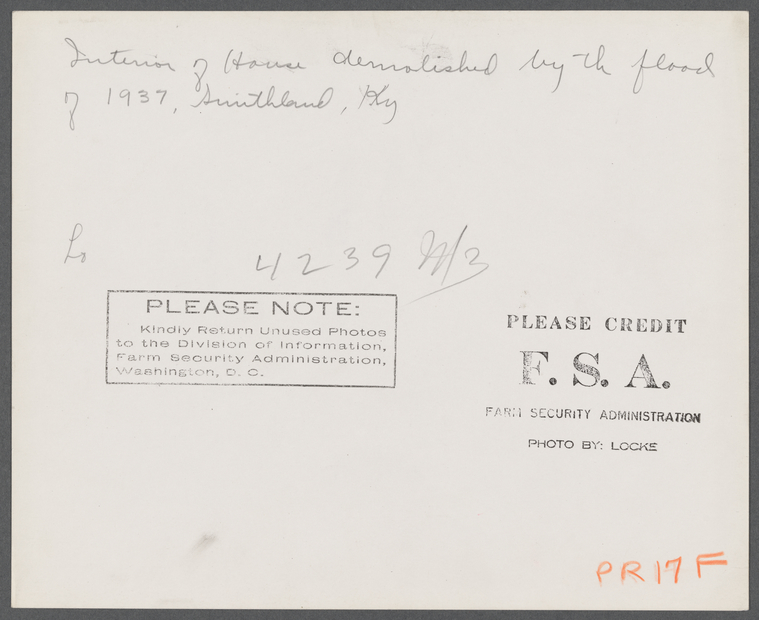 Interior of House demolished by th flood
of 1937, Smithland, Ky
Lo
4239 M/3
PLEASE NOTE:
Kindly Return Unused Photos
to the Division of Information,
Farm Security Administration,
Washington, D. C.
PLEASE CREDIT
F. S. A.
FARM SECURITY ADMINISTRATION
PHOTO BY: LOCKE
PR17F